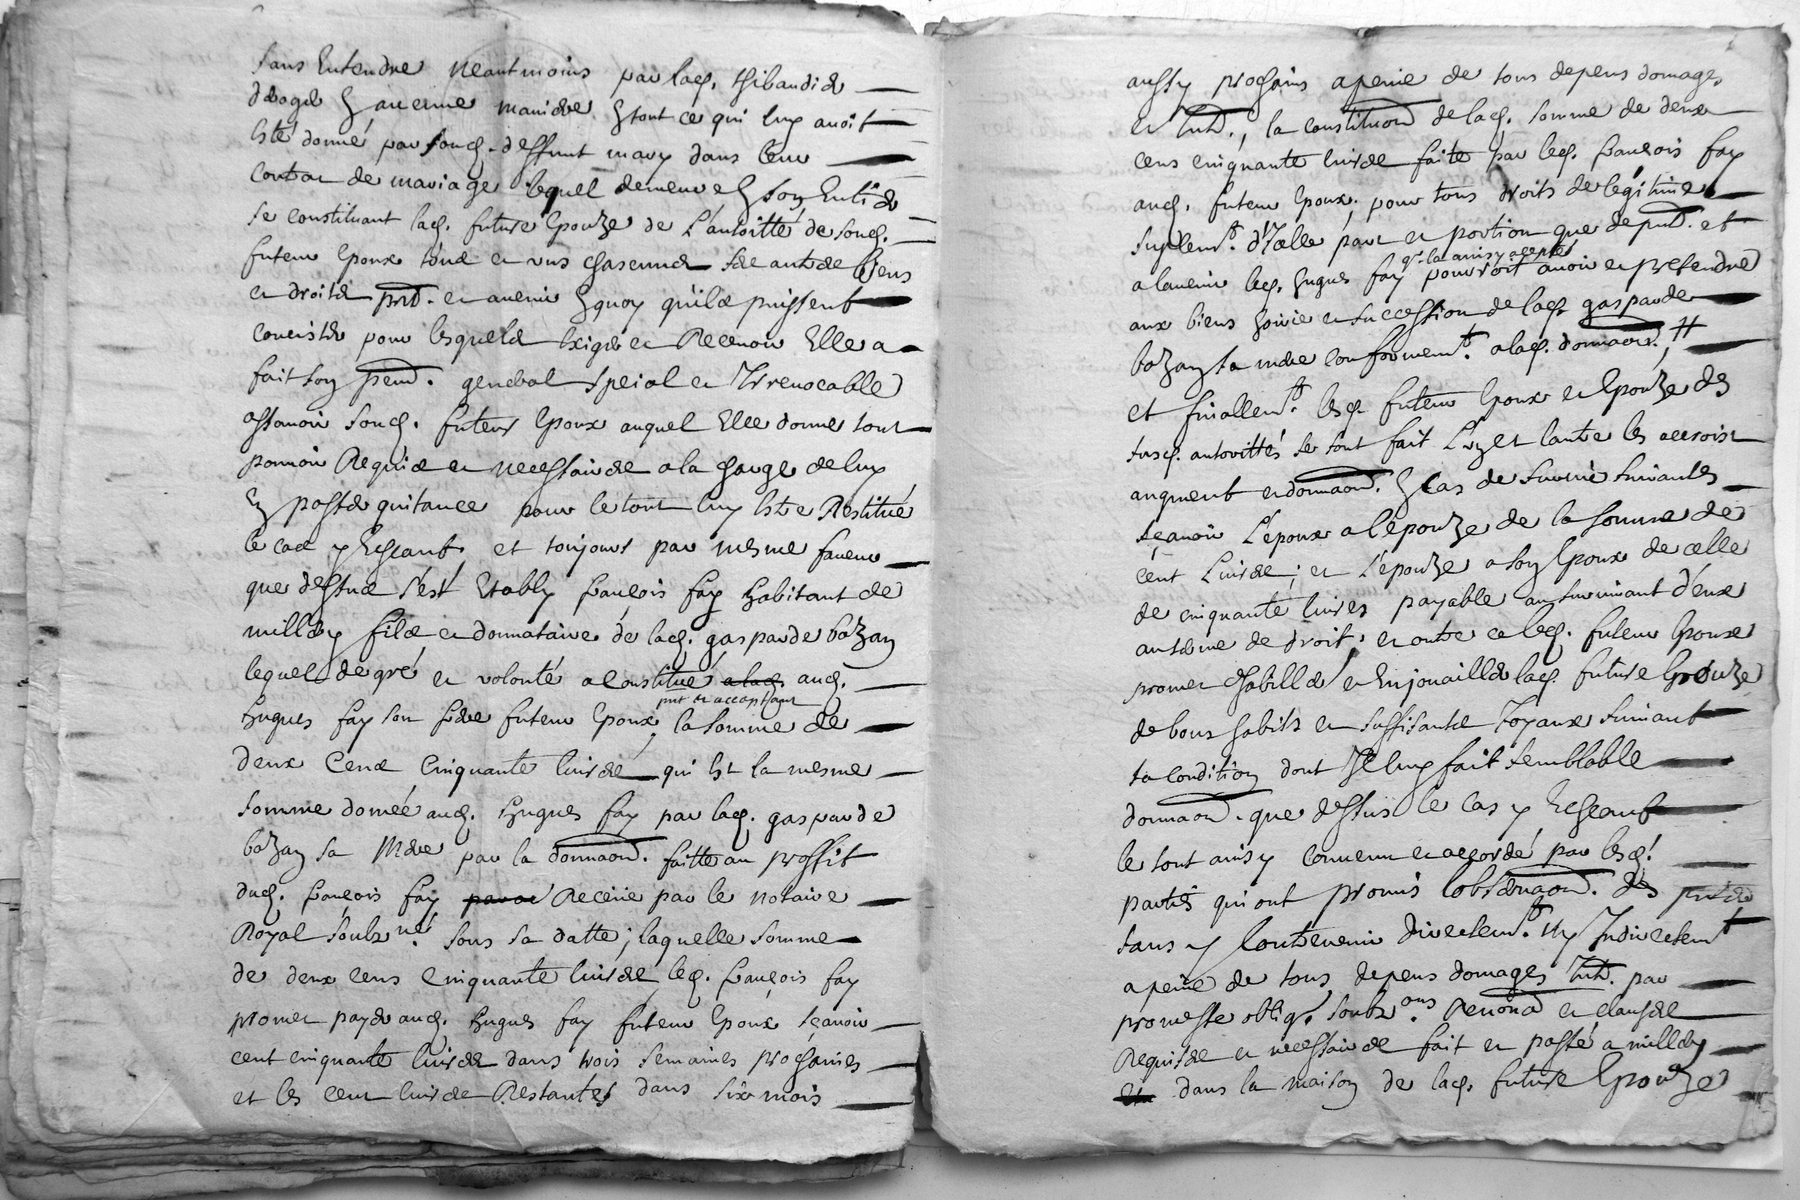 sans Entendre neantmoins par lad. thibaudier
deroger En aucune maniere En tout ce qui luy avoit
Esté donné par soud. deffunt mary dans leur
contrat de mariage lequel demeure En son Entier
se constituant lad. future Epouze de L'autoritté de soud.
futeur Epoux tous et uns chascuns ses autres biens
et droits pnts. et avenir En quoy quils puissent
concister pour lesquels Exiger et Recevoir Elle a
fait son procur. general special et Irrevocable
assavoir soud. futeur Epoux auquel Elle donne tout
pouvoir Requis et necessaire a la charge de luy
En passer quitance pour le tout luy Estre Restitué
le cas y Escheant et toujours par mesme faveur
que dessus s'est Etably françois fay habitant de
millery fils et donnataire de lad. gasparde bozan
lequel de gré et volonté a constitué a lad. aud.
pnt et acceptant
hugues fay son frere futeur Epoux, la somme de
deux Cens Cinquante livres qui Est la mesme
somme donnée aud. hugues fay par lad. gasparde
bozan sa Mere par la donnaon. faitte au proffit
dud. françois fay Receüe par le notaire
Royal soubzné. sous sa datte; laquelle somme
de deux cens cinquante livres led. françois fay
promet payer aud. hugues fay futeur Epoux sçavoir
cent cinquante livres dans trois semaines prochaines
et les cent livres Restantes dans six mois
aussy prochains a peine de tous depens domages
et Intts., la constituon de lad. somme de deux
cens cinquante livres faite par led. françois fay
aud. futeur Epoux, pour tous droits de legitime
suplemt. d'Icelle part et portion que de pnt. et
qui la ainsy accepté
a lavenir led. hugues fay pourroit avoir et pretendre
aux biens hoirie et succession de lad. gasparde
bozan sa mere conformemt. a lad. donnaon., #
et finallemt. lesd. futeur Epoux et Epouze des
susd. autorittés se sont fait L'uz et lautre les accroist
augment et donnaon. En cas de survie suivantes
sçavoir L'epoux a lepouze de la somme de
cent Livres; et L'epouze a son Epoux de celle
de cinquante livres payable au survivant d'eux
au terme de droit, et outre ce led. futeur Epoux
promet habiller et Enjouailler lad. future Epouze
de bons habits et suffisants Joyaux suivant
sa condition dont Il luy fait semblable
donnaon. que dessus le cas y Escheant
le tout ainsy convenu et accordé par lesd.
parties qui ont promis lobservaon. des
sans y Contrevenir directemt. ny Indirectemt
a peine de tous depens domages Intts. par
promesse oblig. soubz.ons Renons et clauses
Requises et necessaires fait et passé a millery
dans la maison de lad. future Epouze